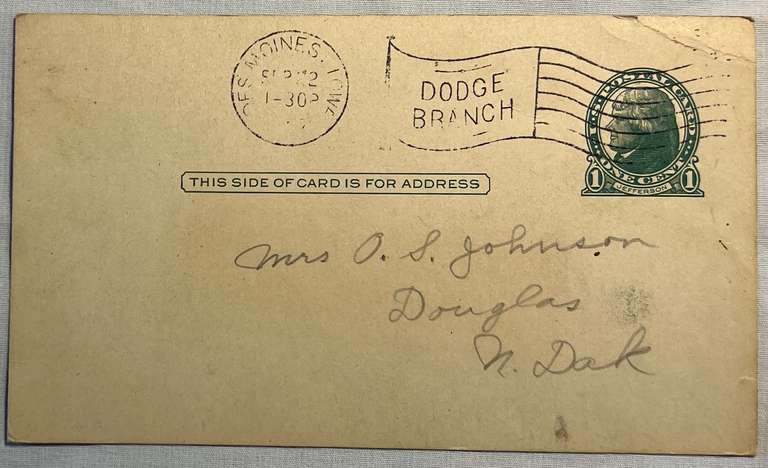 DES MOINES, IOWA
SEP 12
1-30P
DODGE
BRANCH
U.S. POSTAL CARD
ONE CENT
1 JEFFERSON 1
THIS SIDE OF CARD IS FOR ADDRESS
Mrs O. S. Johnson
Douglas
N. Dak